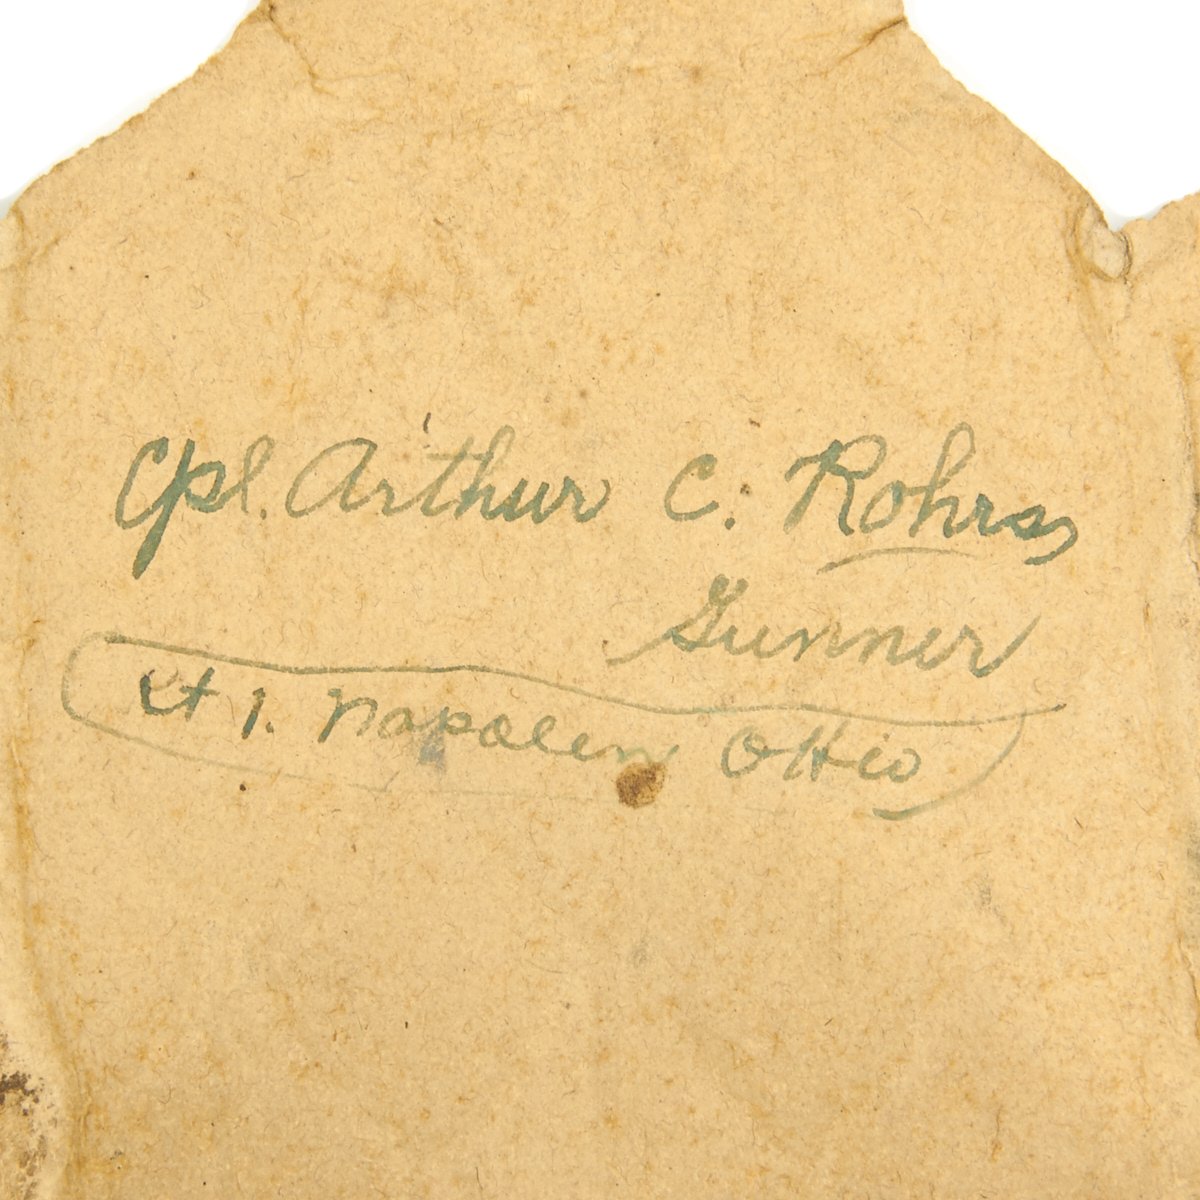 Cpl. Arthur C. Rohrs
Gunner
Rt 1. Napolen Ohio